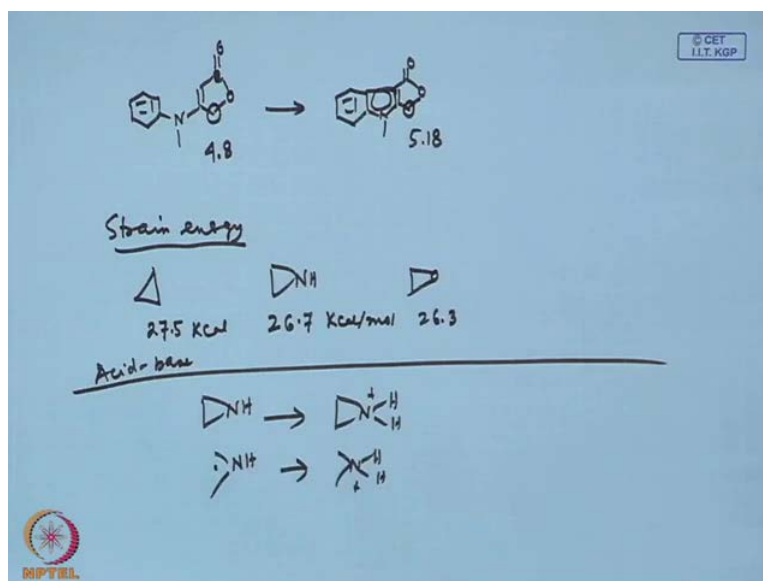 © CET
I.I.T. KGP
O
O
O
N
O
O
N
4.8
5.18
Strain energy
NH
O
27.5 Kcal
26.7 Kcal/mol
26.3
Acid-base
NH → N+ H
H
NH → N+ H
H
NPTEL